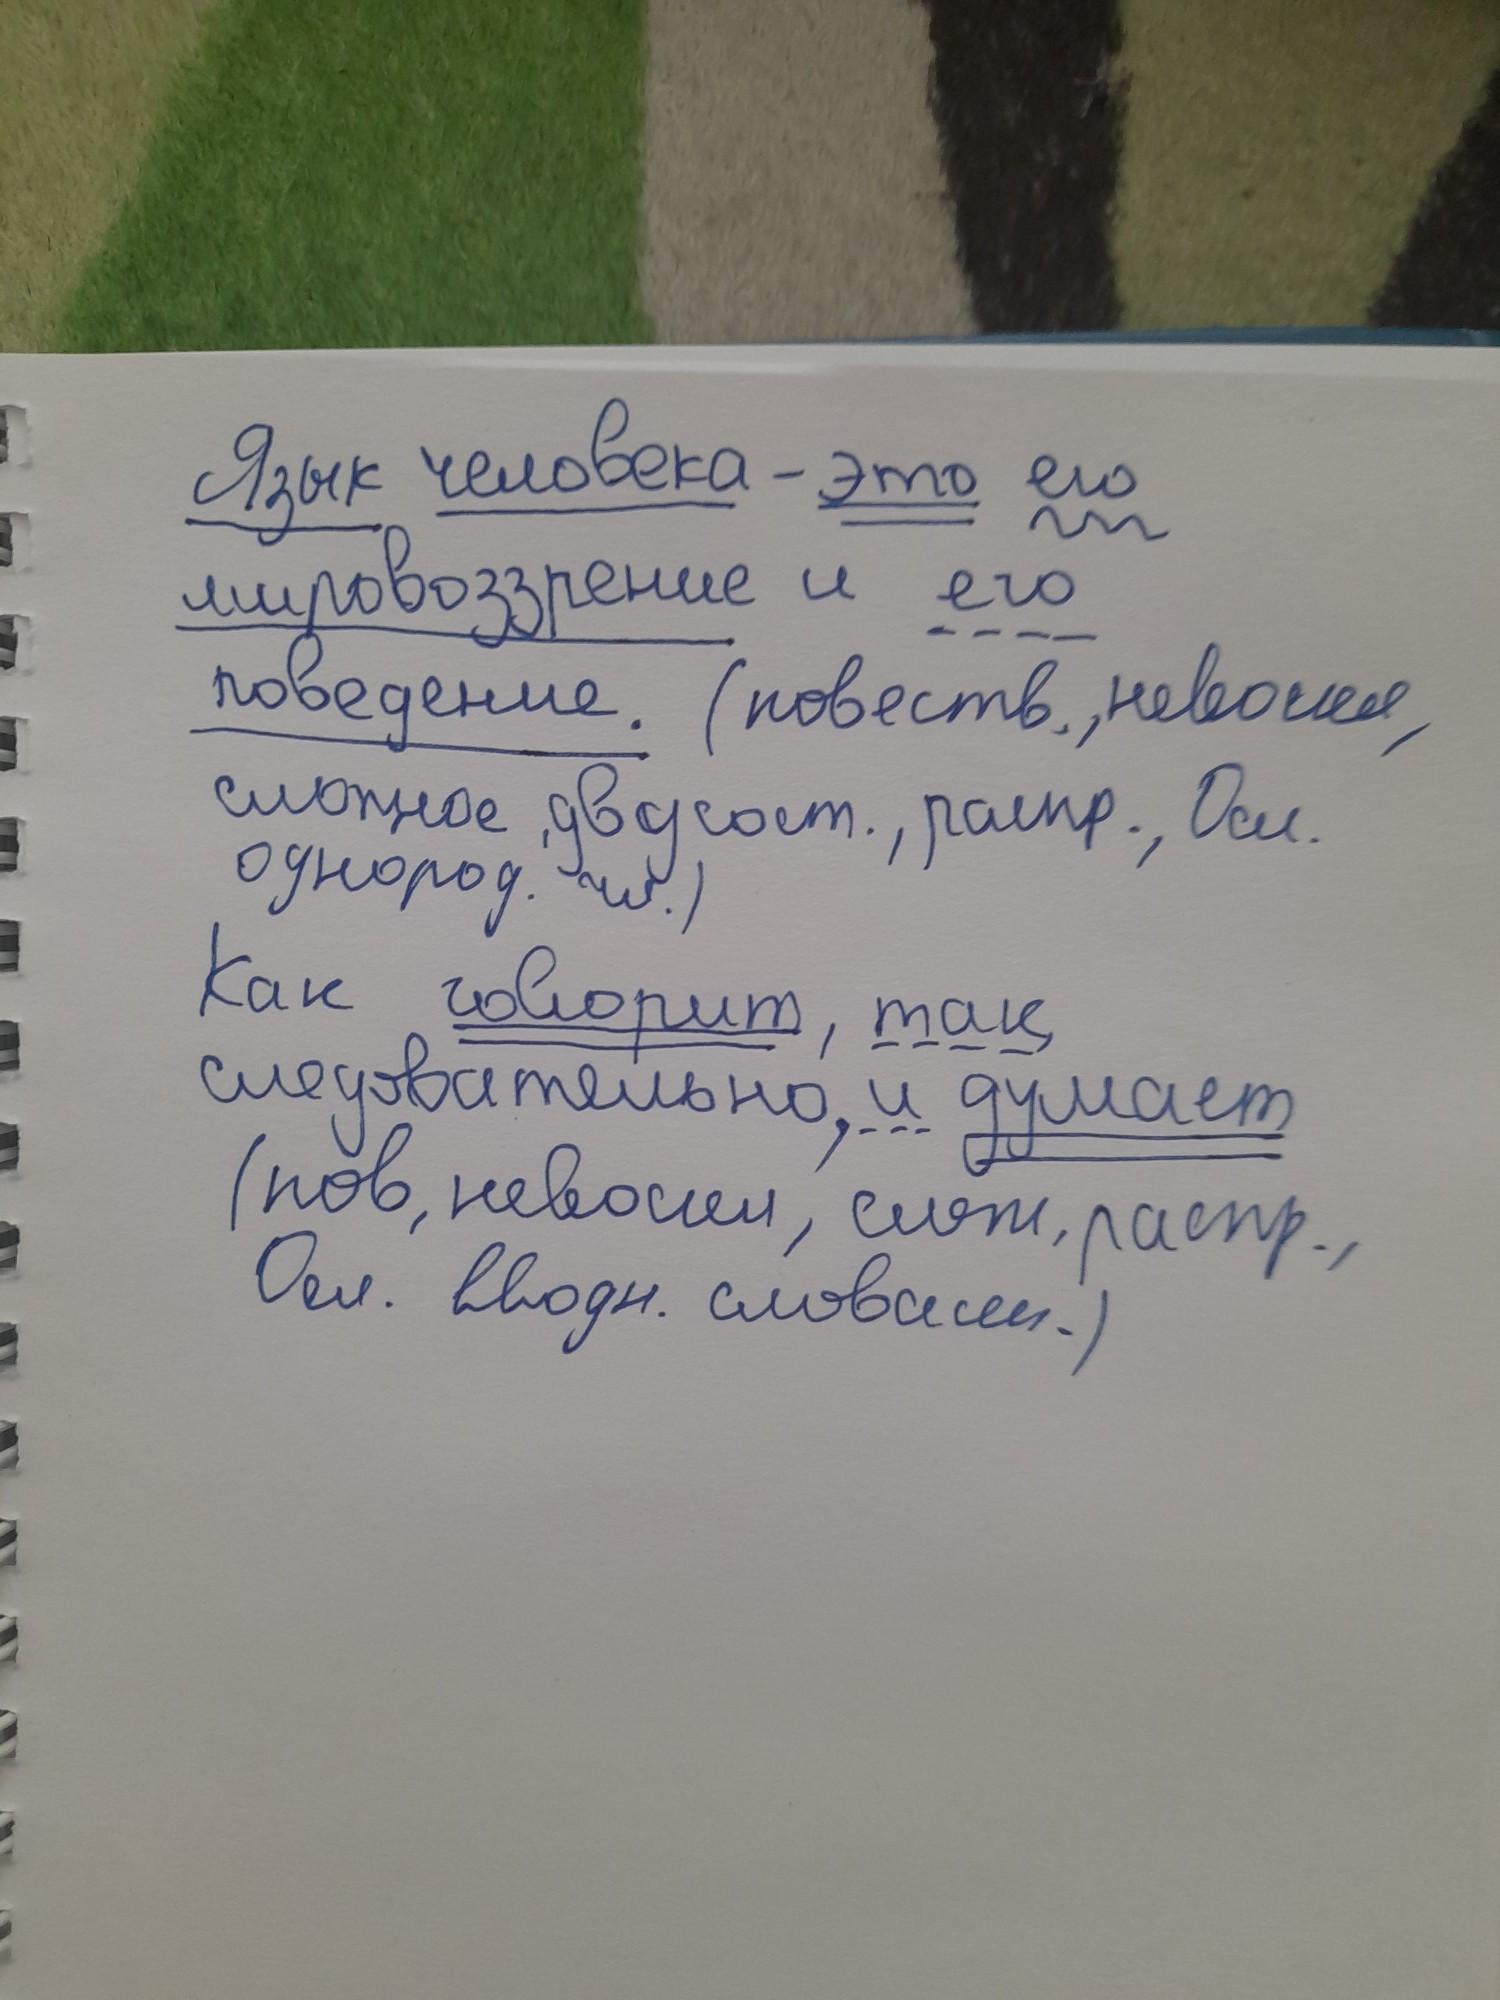 Язык человека - это его
мировоззрение и его
поведение. (повеств., невоскл,
сложное, двусост., распр., Осл.
однород. чл.)
Как говорит, так,
следовательно, и думает
(пов, невоскл, слож, распр.,
Осл. вводн. словами.)